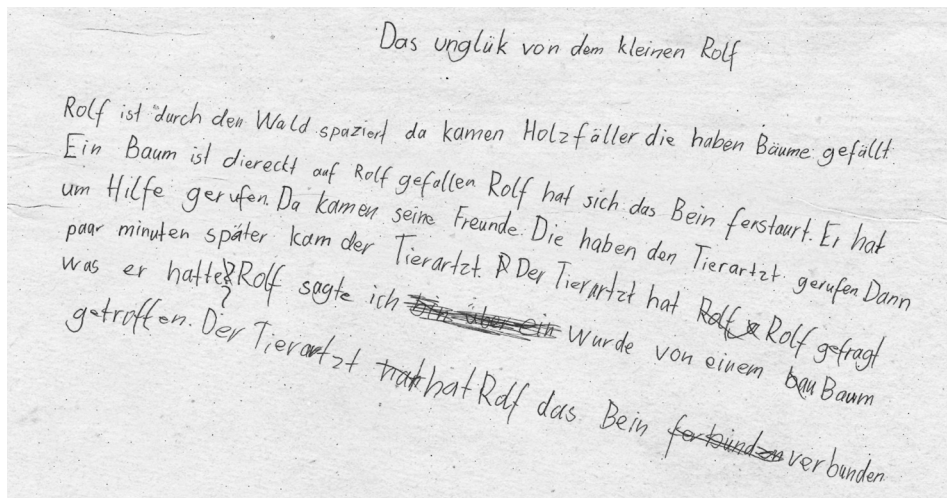 Das unglük von dem kleinen Rolf
Rolf ist durch den Wald spaziert da kamen Holzfäller die haben Bäume gefällt.
Ein Baum ist diereckt auf Rolf gefallen Rolf hat sich das Bein ferstaurt. Er hat
um Hilfe gerufen. Da kamen seine Freunde. Die haben den Tierartzt gerufen. Dann
paar minuten später kam der Tierartzt. Der Tierartzt hat Rolf gefragt
was er hatte? Rolf sagte ich wurde von einem Baum
getroffen. Der Tierartzt hat Rolf das Bein verbunden